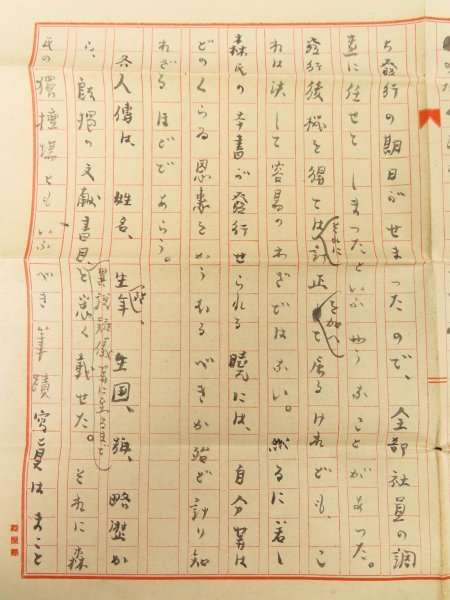 ち發行の期日がせまつたので、全部社員の調
査に任せてしまつたといふやうなことがあつた。
發行後機を得てはそれに訂正を加へて居るけれども、こ
れは決して容易のわざではない。然るに若し
森氏の本書が發行せられる曉には、自分等は
どのくらゐ恩惠をかうむるべきか殆ど計り知
れざるほどであらう。
各人傳は、姓名、生歿年、生国、號、略歴か
ら、關係の文献書目、異説疑儀等に至るまでを悉く載せた。それに森
氏の獨壇場ともいふべき筆蹟寫眞はまこと